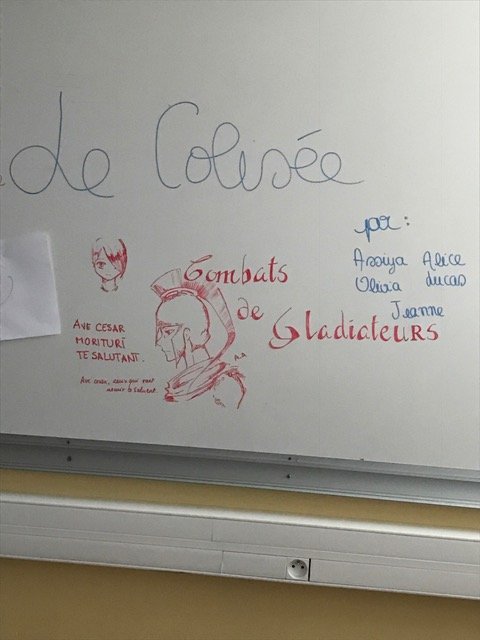 Le Colisée
par :
Assiya Alice
Olivia Lucas
Jeanne
Combats
de
Gladiateurs
AVE CESAR
MORITURI
TE SALUTANT.
Ave cesar, ceux qui vont
mourir te saluent.
A.A